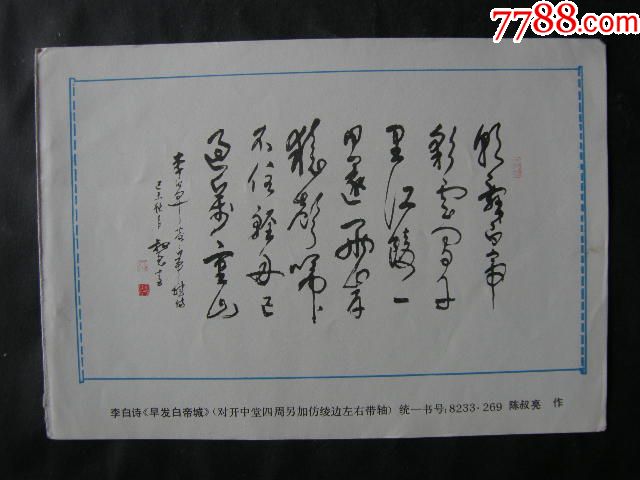 7788.com
朝辭白帝
彩雲間千
里江陵一
日還兩岸
猿聲啼
不住輕舟已
過萬重山
李白早發白帝城詩
己未秋月 叔亮書
李白诗《早发白帝城》(对开中堂四周另加仿绫边左右带轴) 统一书号:8233·269 陈叔亮 作